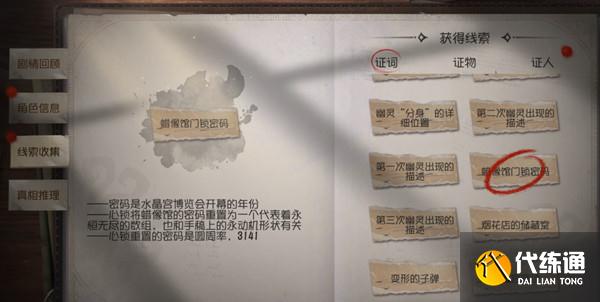 剧情回顾
角色信息
线索收集
真相推理
蜡像馆门锁密码
——密码是水晶宫博览会开幕的年份
——心锁将蜡像馆的密码重置为一个代表着永
恒无尽的数组，也和手稿上的永动机形状有关
——心锁重置的密码是圆周率，3141
获得线索
证词
证物
证人
幽灵“分身”的详
细位置
第二次幽灵出现的
描述
第一次幽灵出现的
描述
蜡像馆门锁密码
第三次幽灵出现的
描述
烟花店的储藏室
变形的子弹
代练通
DAI LIAN TONG